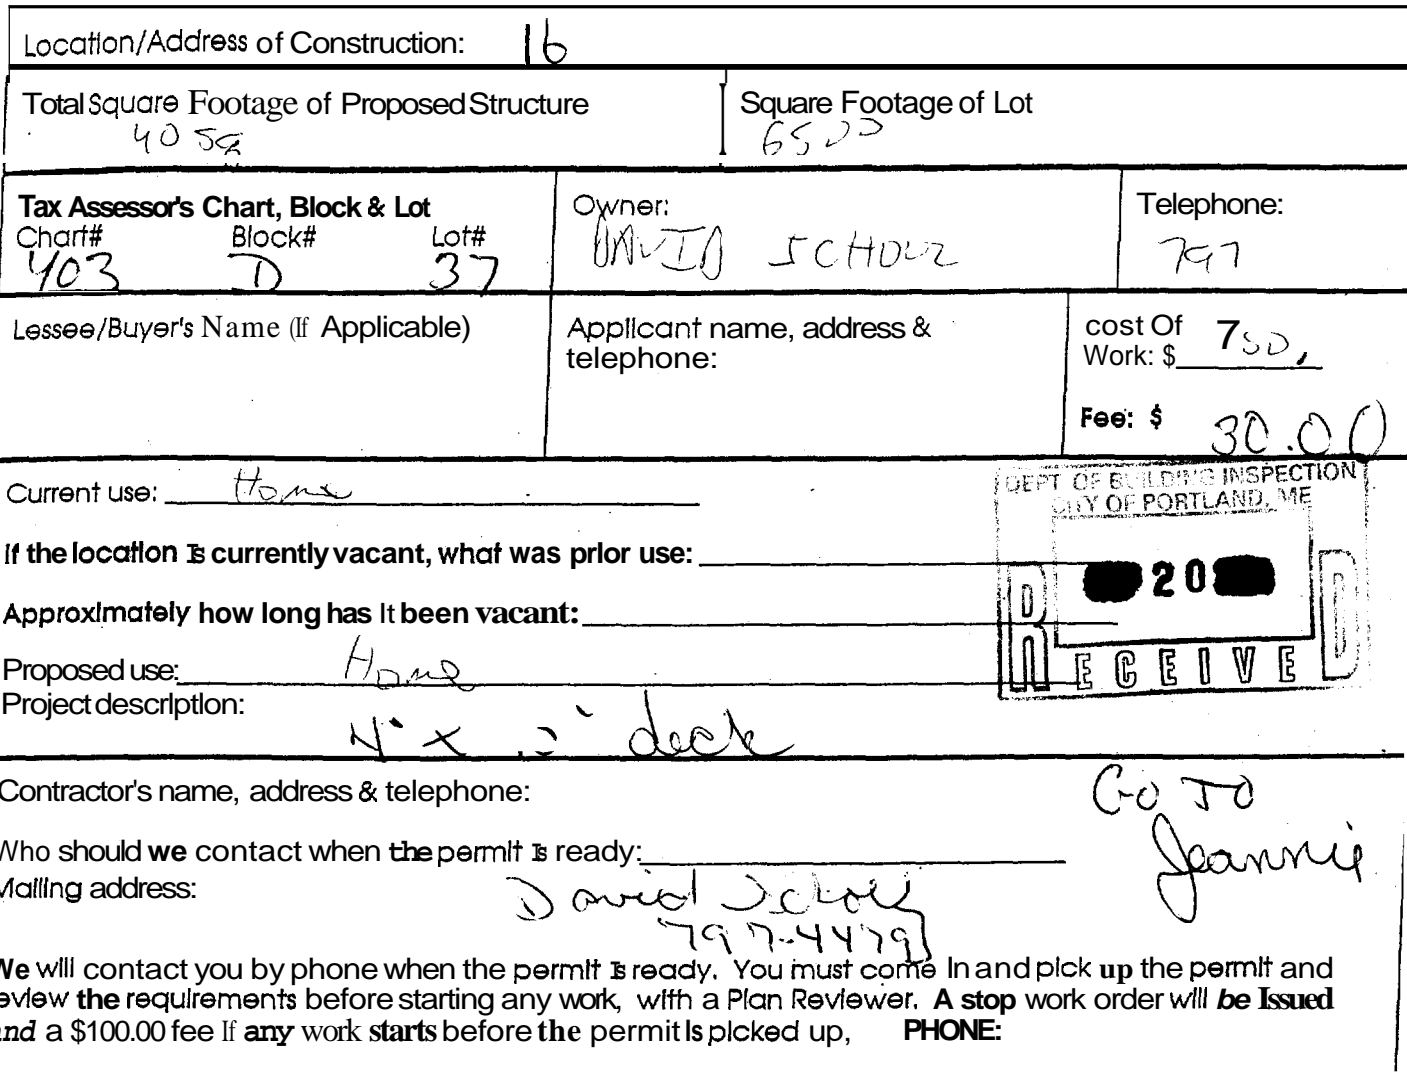 Location/Address of Construction: 16
Total Square Footage of Proposed Structure
40 SQ
Square Footage of Lot
6500
Tax Assessor's Chart, Block & Lot
Chart# Block# Lot#
403 D 37
Owner:
DAVID SCHOUZ
Telephone:
797
Lessee/Buyer's Name (If Applicable)
Applicant name, address &
telephone:
cost Of
Work: $ 750.
Fee: $ 30.00
Current use: Home
If the location Is currently vacant, what was prior use:
Approximately how long has it been vacant:
DEPT OF BUILDING INSPECTION
CITY OF PORTLAND, ME
20
RECEIVED
Proposed use: Home
Project description:
4' x deck
Contractor's name, address & telephone:
Go TO
Jeannie
Who should we contact when the permit is ready:
Mailing address:
David
797-4479
We will contact you by phone when the permit is ready. You must come in and pick up the permit and
eview the requirements before starting any work, with a Plan Reviewer. A stop work order will be Issued
nd a $100.00 fee If any work starts before the permit is picked up, PHONE: